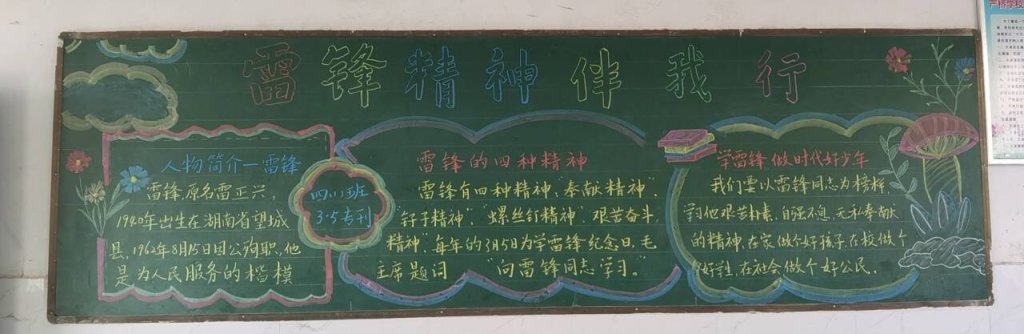 雷锋精神伴我行
人物简介—雷锋
雷锋,原名雷正兴,
1940年出生在湖南省望城
县,1962年8月15日因公殉职,他
是为人民服务的楷模
四(1)班
3·5专刊
雷锋的四种精神
雷锋有四种精神,“奉献精神”,
钉子精神”,“螺丝钉精神”艰苦奋斗
精神”,每年的3月5日为学雷锋纪念日,毛
主席题词 “向雷锋同志学习。”
学雷锋 做时代好少年
我们要以雷锋同志为榜样
学习他艰苦朴素,自强不息,无私奉献
的精神,在家做个好孩子,在校做个
好学生,在社会做个好公民。